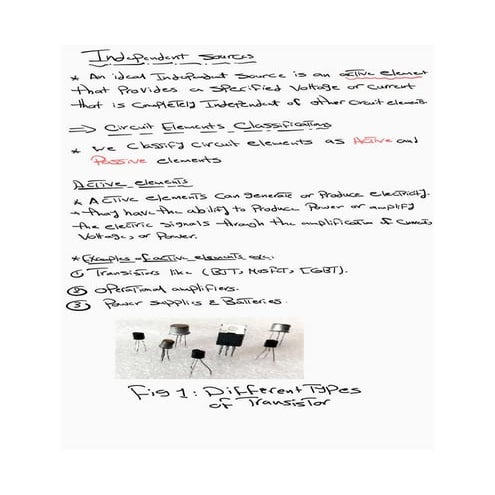 Independent Sources
* An ideal Independent Source is an active element
that Provides a Specified Voltage or current
that is Completely Independent of other circuit elements
=> Circuit Elements Classification
* We Classify Circuit elements as Active and
Passive elements
Active elements
* Active elements Can generate or Produce electricity.
* they have the ability to Produce Power or amplify
the electric signals through the amplification of Current,
Voltage, or Power.
* Examples of active elements are:
① Transistors like (BJT, Mosfet, IGBT).
② operational amplifiers.
③ Power supplies & Batteries.
Fig 1: Different Types
of Transistor